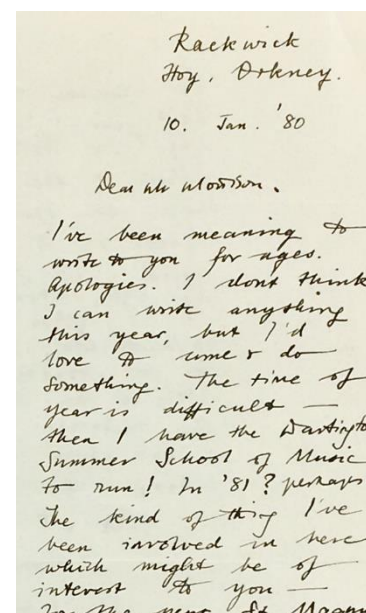 Rackwick
Hoy, Orkney.
10. Jan. '80
Dear Mr Morrison.
I've been meaning to
write to you for ages.
Apologies. I dont think
I can write anything
this year, but I'd
love to come & do
something. The time of
year is difficult —
then I have the Dartingto
Summer School of Music
to run! In '81? perhaps
The kind of thing I've
been involved in here
which might be of
interest to you —
for the new St Magnu